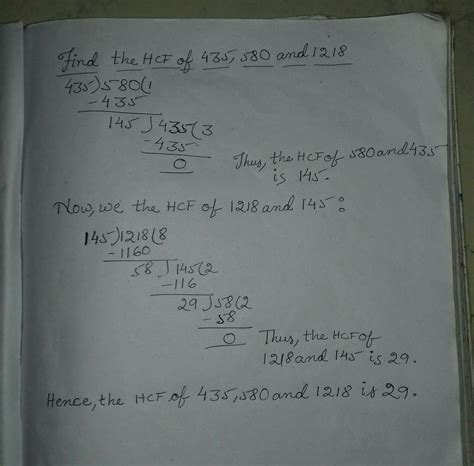 Find the HCF of 435, 580 and 1218
435)580(1
-435
145)435(3
-435
0
Thus, the HCF of 580 and 435
is 145.
Now, we the HCF of 1218 and 145:
145)1218(8
-1160
58)145(2
-116
29)58(2
-58
0
Thus, the HCF of
1218 and 145 is 29.
Hence, the HCF of 435, 580 and 1218 is 29.